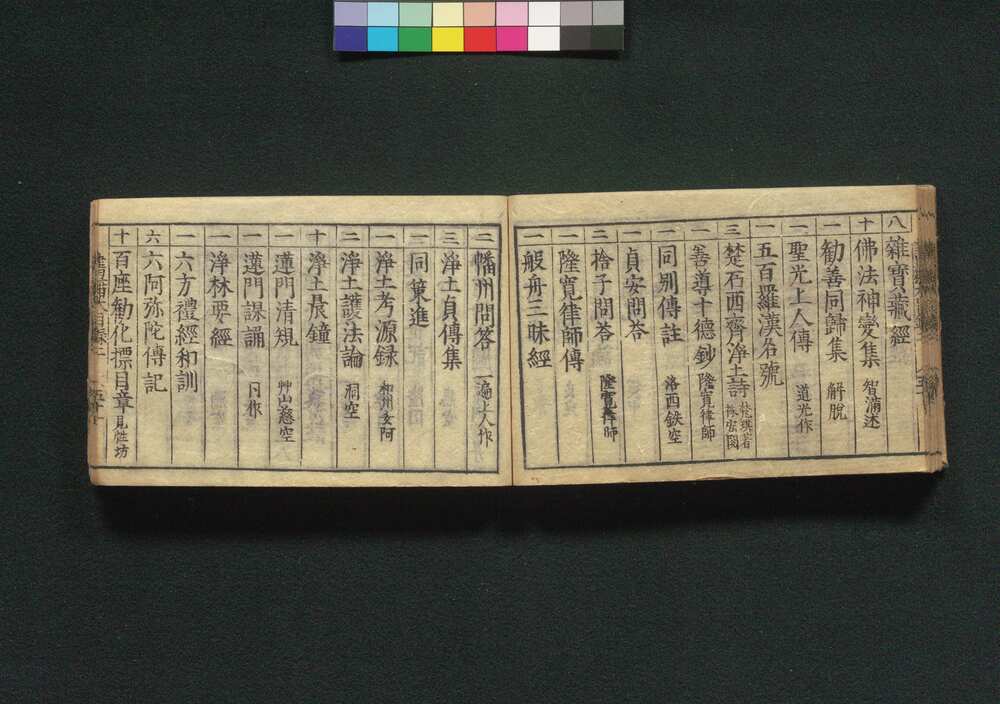 八 雜寳藏經
十 佛法神變集 智滿述
一 勧善同歸集 解脱
一 聖光上人傳 道光作
一 五百羅漢名號
三 楚石西齋淨土詩
一 善導十德鈔 隆寛律師
一 同別傳註 洛西鉄空
一 貞安問答
二 捨子問答 隆寛律師
一 隆寛律師傳
一 般舟三昧經
二 幡州問答 一遍上人作
三 淨土貞傳集
二 同策進
一 淨土考源録 和州玄阿
二 淨土護法論 洞空
十 淨土晨鐘
一 蓮門清規 艸山慈空
一 蓮門課誦 同作
一 淨林要經
一 六方禮經和訓
六 六阿弥陀傳記
十 百座勧化標目章 見性坊